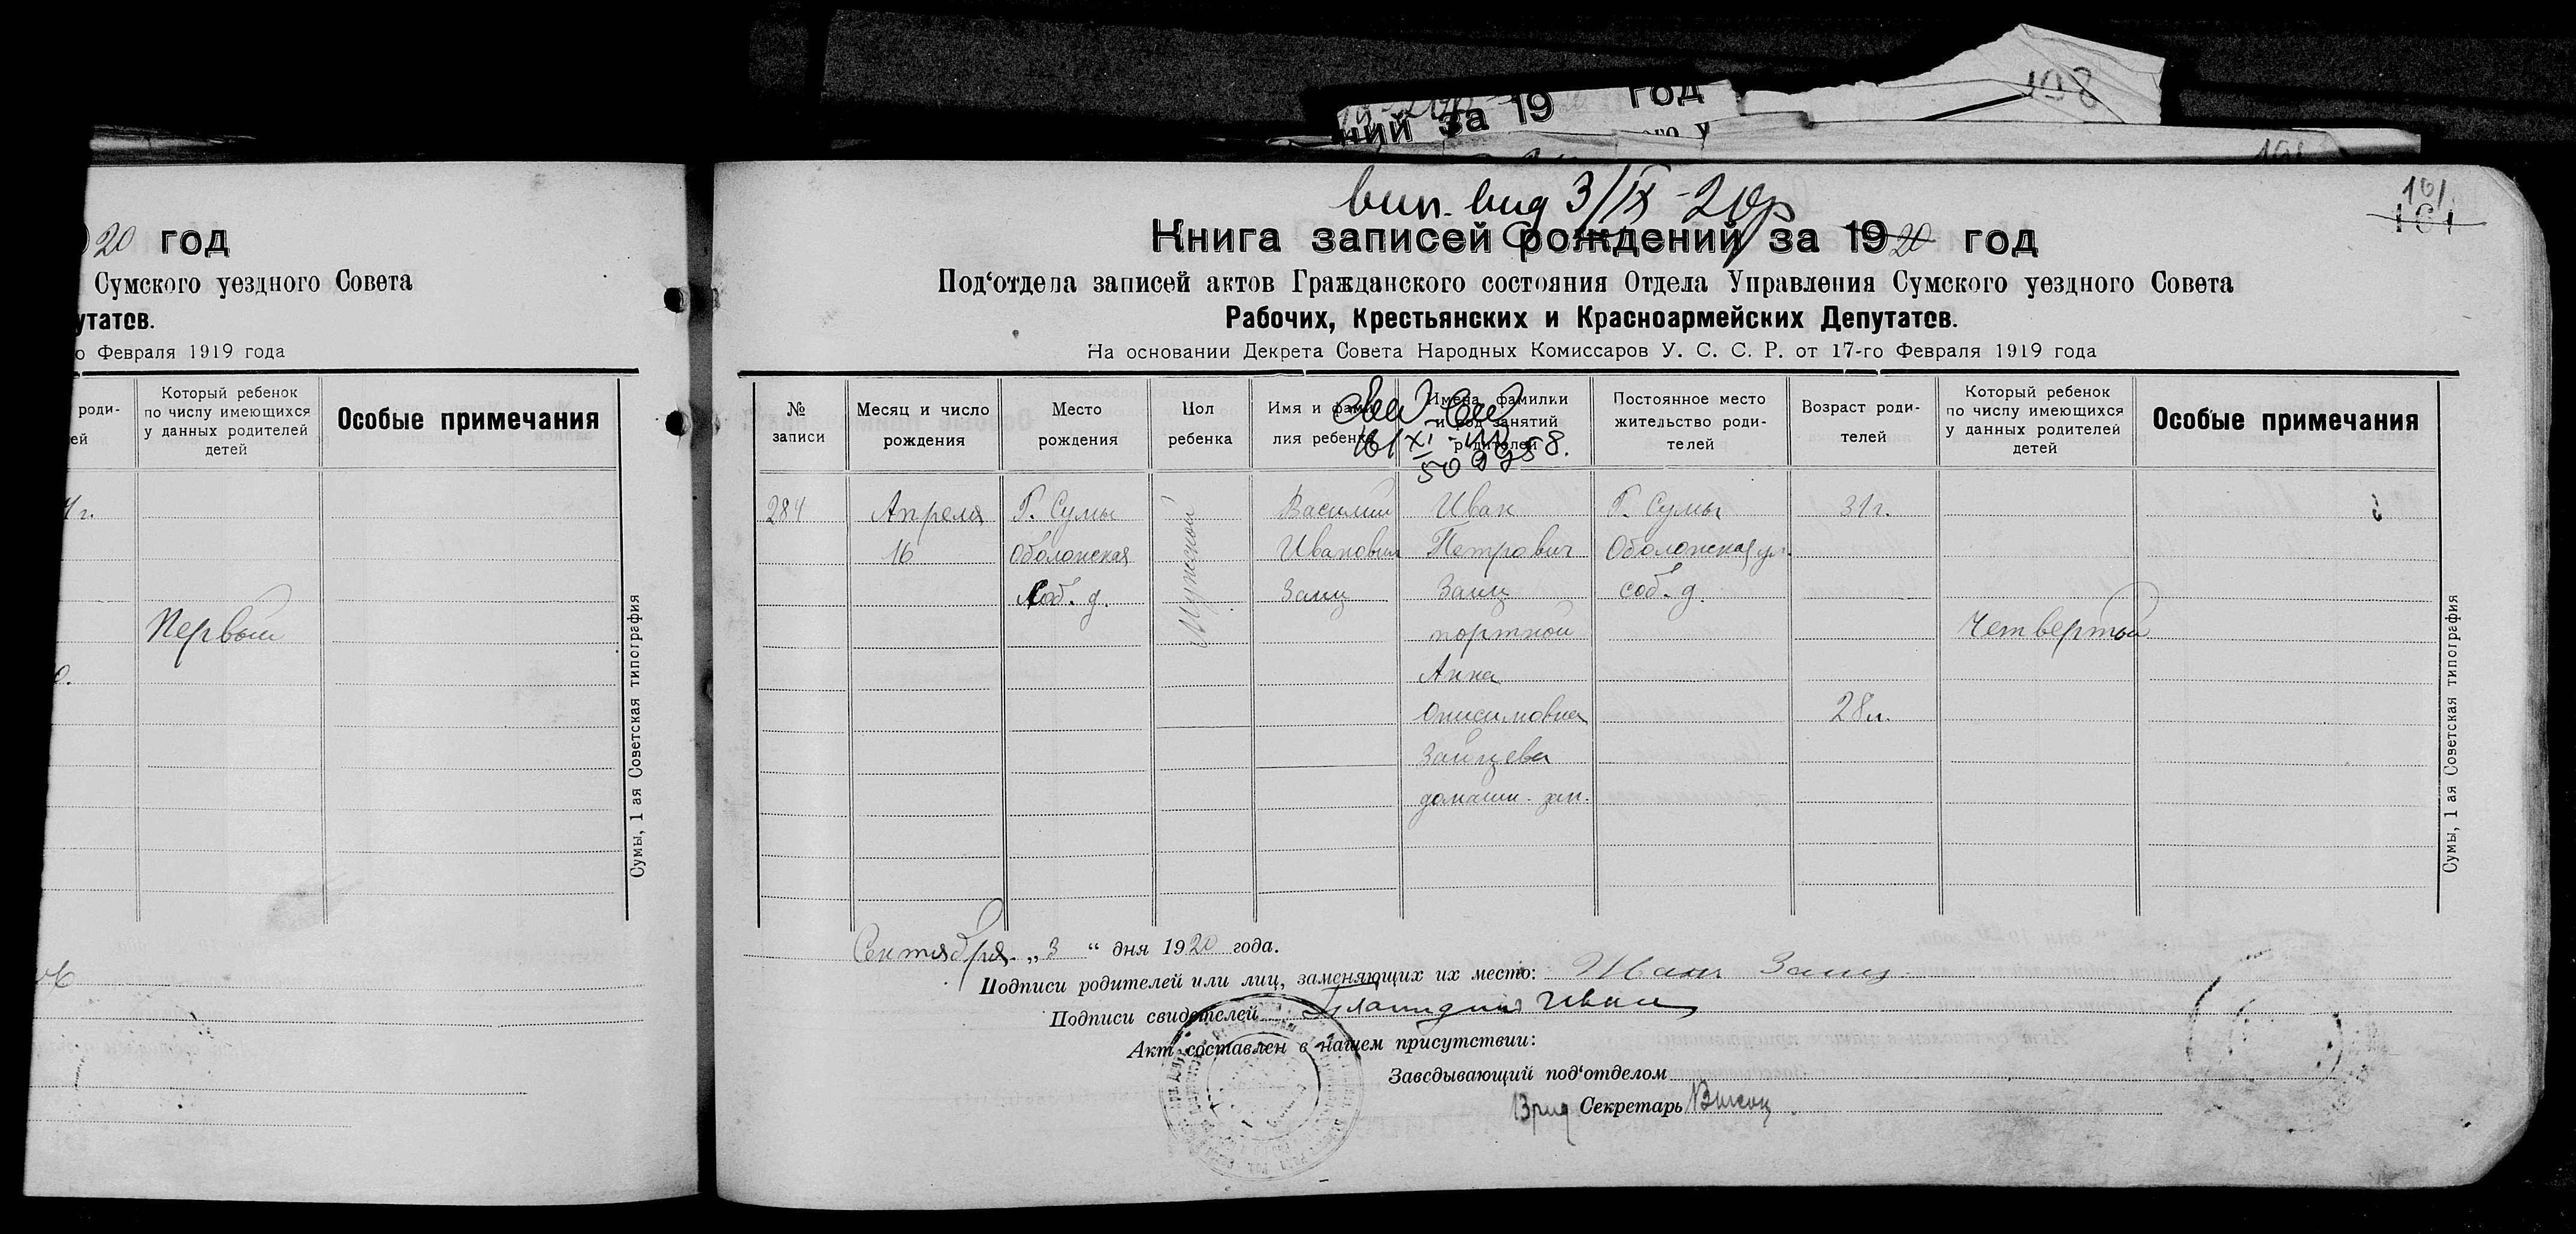 198
ний за 19 год
20 год
Сумского уездного Совета
утатов.
о Февраля 1919 года
роди-
ей
Который ребенок
по числу имеющихся
у данных родителей
детей
Особые примечания
1 г.
Первый
Сумы, 1 ая Советская типография
вип. вид 3/IX-20р
101
101
Книга записей рождений за 1920 год
Под‘отдела записей актов Гражданского состояния Отдела Управления Сумского уездного Совета
Рабочих, Крестьянских и Красноармейских Депутатов.
На основании Декрета Совета Народных Комиссаров У. С. С. Р. от 17-го Февраля 1919 года
№
записи
Месяц и число
рождения
Место
рождения
Пол
ребенка
Имя и фами-
лия ребенка
Имена, фамилии
и род занятий
родителей
Постоянное место
жительство роди-
телей
Возраст роди-
телей
Который ребенок
по числу имеющихся
у данных родителей
детей
Особые примечания
284
Апреля
16
Г. Сумы
Оболонская
соб. д.
Мужеской
Василий
Иванович
Заяц
Иван
Петрович
Заяц
портной
Анна
Онисимовна
Зайцева
домашн. зан.
Г. Сумы
Оболонская ул.
соб. д.
31 г.
28 л.
Четвертый
Сумы, 1 ая Советская типография
Сентября „3“ дня 1920 года.
Подписи родителей или лиц, заменяющих их место: Иван Заяц
Подписи свидетелей Иван
Акт составлен в нашем присутствии:
Заведывающий под‘отделом
Врид Секретарь